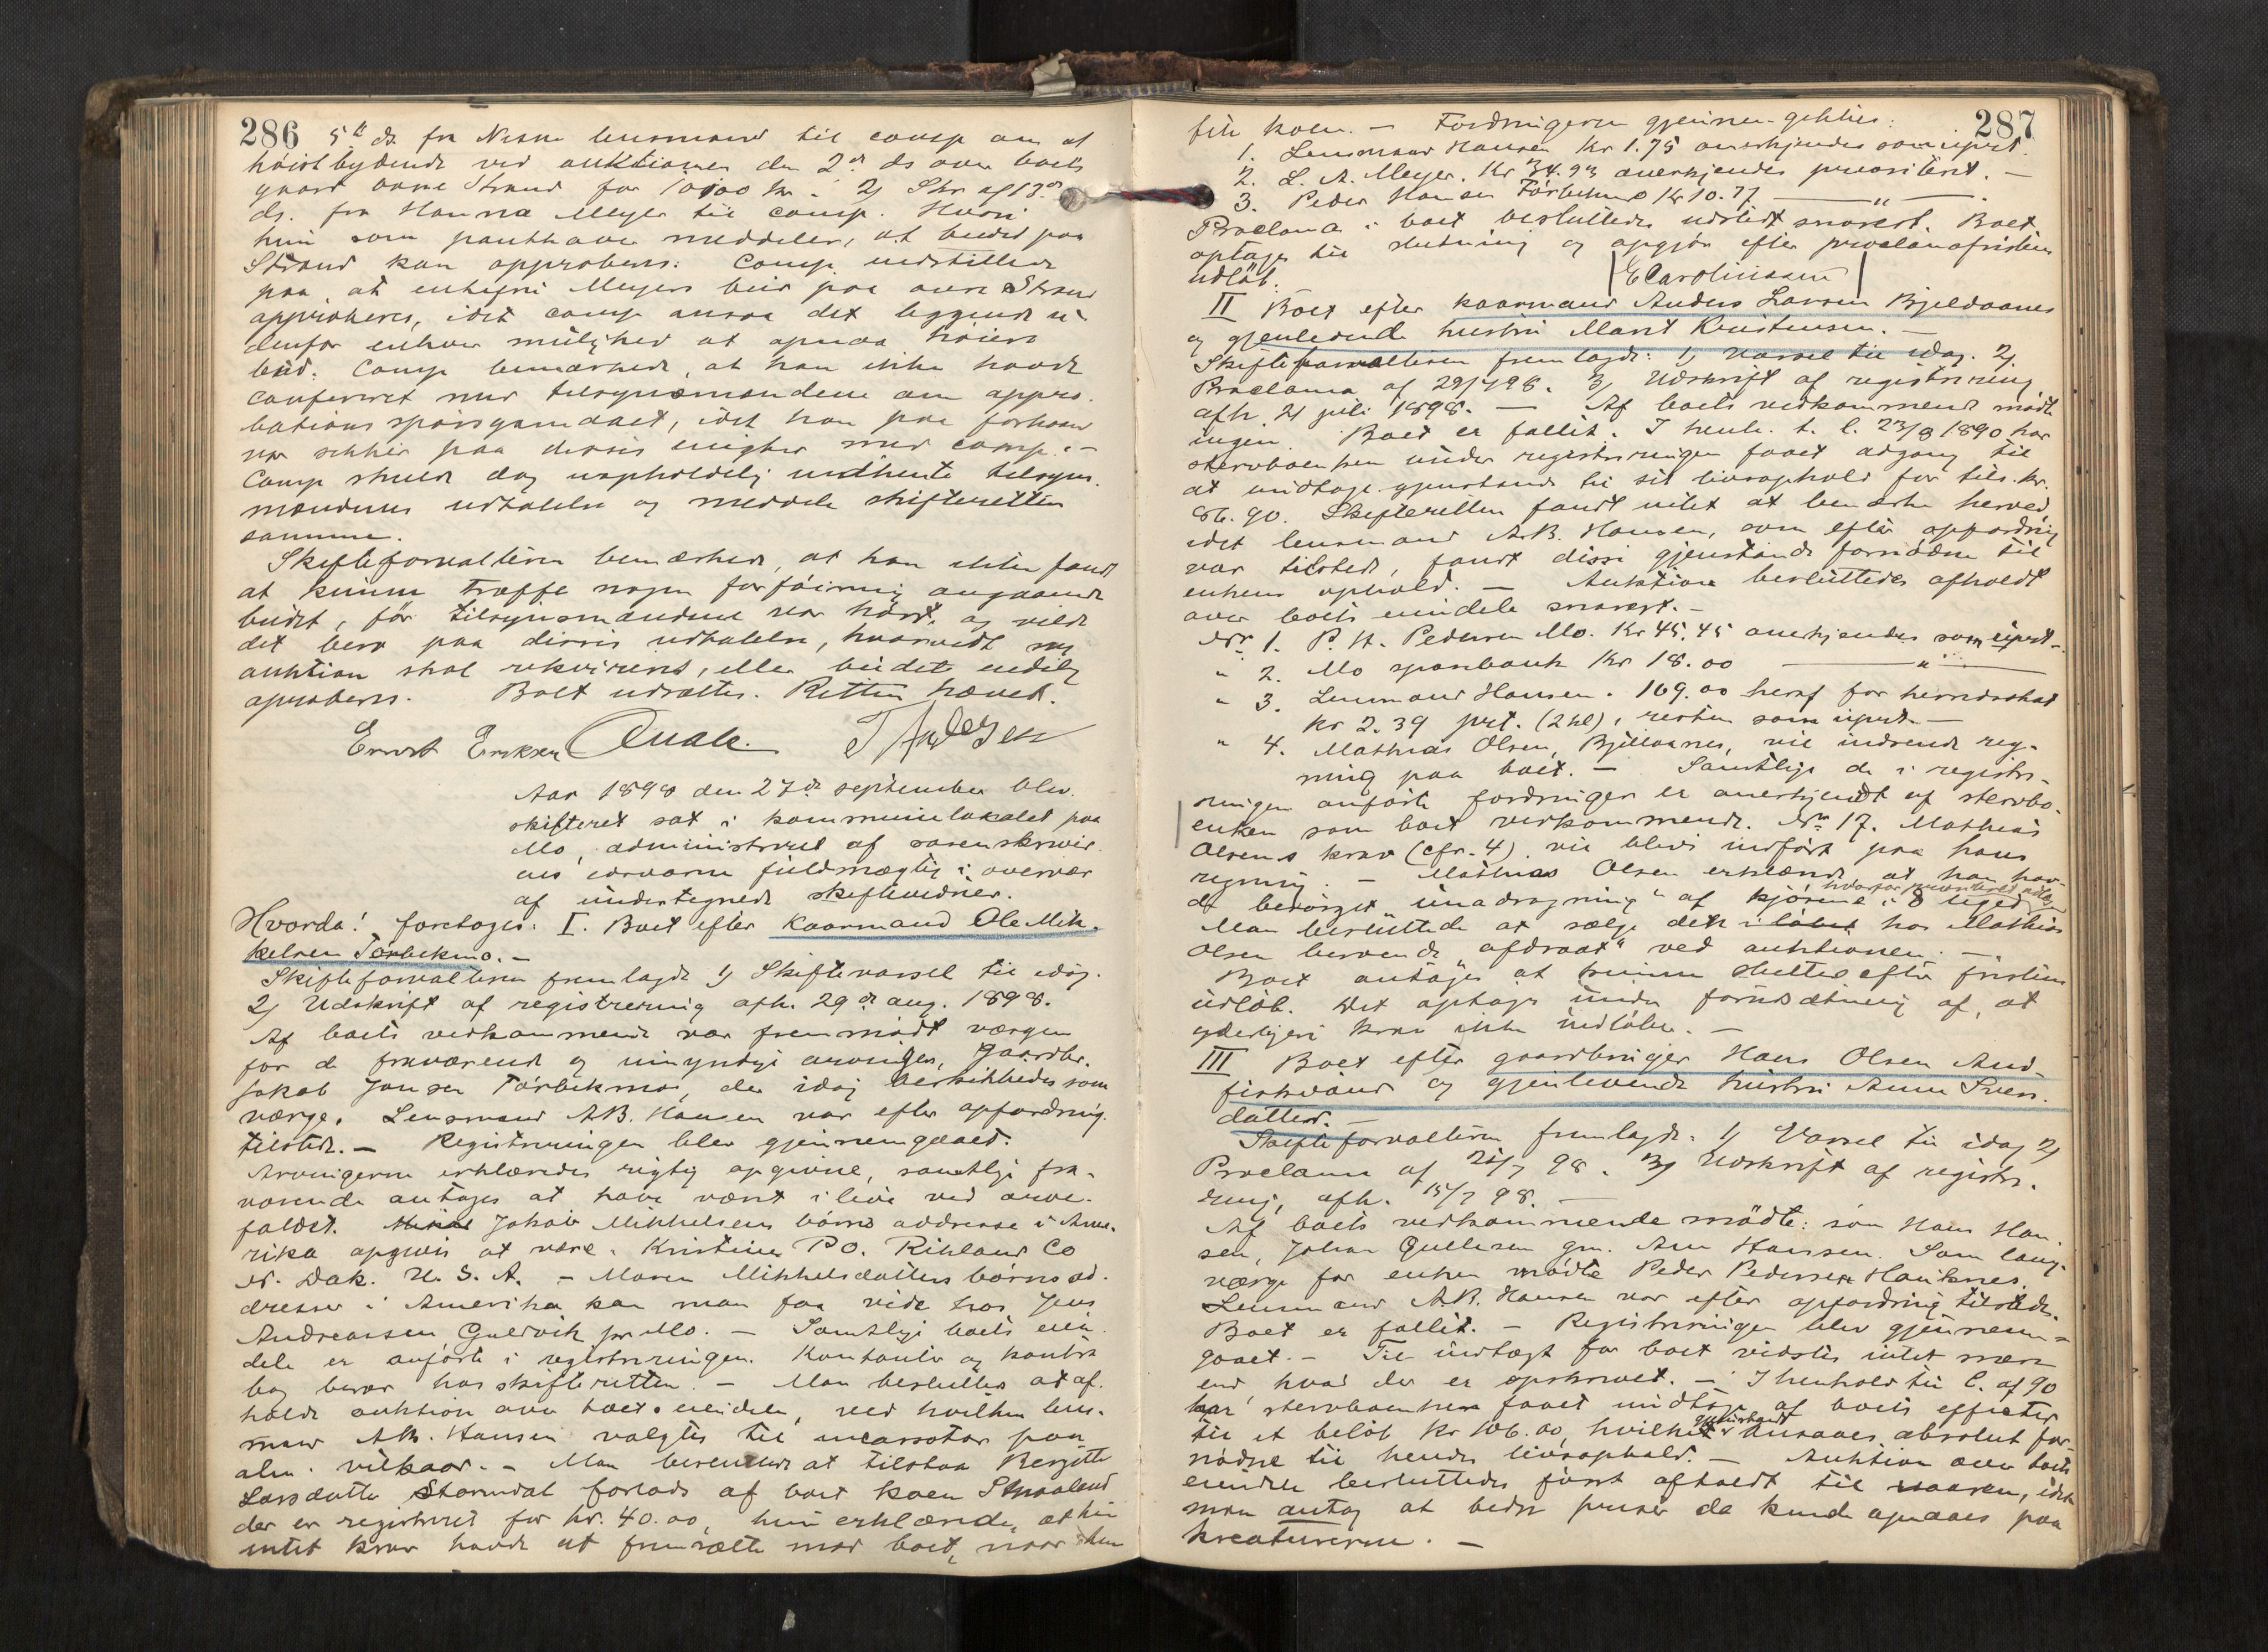 286 5te ds. fra Nesna lensmand til comp om at
høistbydende ved auktionen den 2den ds over boets
gaard øvre Strand for 10000 kr. 2) Skr af 13de
ds. fra Hanna Meyer til comp. Hvori
hun som panthaver meddeler, at budet paa
Strand kan approberes. Comp. indstillede
paa, at enkefru Meyers bud paa øvre Strand
approberes, idet comp ansaa det liggende u-
denfor enhver mulighed at opnaa høiere
bud. Comp bemærkede, at han ikke havde
confereret med tilsynsmændene om appro-
bationsspørsgmaalet, idet han paa forhaand
var sikker paa disses enighed med comp. -
Comp skulde dog uopholdelig indhente tilsyns-
mændenes udtalelse og meddele skifteretten
samme.
Skifteforvalteren bemærkede, at han ikke fandt
at kunne træffe nogen forføining angaaende
budet, før tilsynsmændene var hørt, og vilde
det bero paa disses udtalelse, hvorvidt ny
auktion skal rekvireres, eller budet endelig
approberes. Boet udsættes. Retten hævet.
Ernst Eriksen Quale. T Andersen
Aar 1898 den 27de september blev
skifteret sat i kommunelokalet paa
Mo, administreret af sorenskrive-
ens edsvorne fuldmægtig i overvær
af undertegnede skiftevidner.
Hvorda! foretoges: I. Boet efter kaarmand Ole Mik-
kelsen Tørbekmo. -
Skifteforvalteren fremlagde 1) Skiftevarsel til idag.
2) Udskrift af registrering afh. 29de aug. 1898.
Af boets vedkommende var fremmødt værgen
for de fraværende og umyndige arvinger, gaardbr.
Jakob Jonsen Tørbekmo, der idag beskikkedes som
værge. Lensmand A.B. Hansen var efter opfordring
tilstede. - Registreringen blev gjennemgaaet.
Arvingerne erklæredes rigtig opgivne, samtlige fra-
værende antages at have været i live ved arve-
faldet. Jakob Mikkelsens børns addresse i Ame-
rika opgives at være: Kristina P.O. Rihland Co
N. Dak. U. S. A. - Maren Mikkelsdatters børns ad-
dresser i Amerika kan man faa vide hos Jens
Andreassen Guldvik pr Mo. - Samtlige boets eien-
dele er anførte i registreringen. Kontanter og kontra
bog beror hos skifteretten. - Man besluttes at af-
holde auktion over boets eiendele, ved hvilken lens-
mand A.B. Hansen valgtes til incassator paa
alm. vilkaar. - Man besluttede at tilstaa Bergitte
Larsdatter Stormdal forlods af boet koen Straaland
der er registreret for kr. 40.00, hun erklærede, at hun
intet krav havde at fremsætte mod boet, naar hun
287
fik koen. - Fordringerne gjennemgikkes:
1. Lensmand Hansen Kr 1.75 anerkjendes som uprt.
2. L. A. Meyer. Kr 34.93 anerkjendes prioritert. -
3. Peder Hansen Tørbekmo Kr 10.77 — " —.
Proclama i boet besluttedes udstedt snarest. Boet
optages til slutning og opgjør efter proclamafristens
udløb. ECarolinssen
II Boet efter kaarmand Anders Larsen Bjeldaanes
og gjenlevende hustru Marit Kristensen. -
Skifteforvalteren fremlagde: 1) Varsel til idag. 2)
Proclama af 29/7 98. 3) Udskrift af registrering
afh. 21 juli 1898. - Af boets vedkommende mødte
ingen. Boet er fallit. I henh. t. l. 23/8 1890 har
stervboenken under registreringen faaet adgang til
at undtage gjenstande til sit livsophold for tils. kr.
86.90. Skifteretten fandt intet at bemærke herved,
idet lensmand A.B. Hansen, som efter opfordring
var tilstede, fandt disse gjenstande fornødne til
enkens ophold. - Auktion besluttedes afholdt
over boets eiendele snarest. -
No 1. P. H. Pedersen Mo. Kr 45.45 anerkjendes som uprt -
" 2. Mo sparebank Kr 18.00 — " —
" 3. Lensmand Hansen. 169.00 heraf for herredsskat
kr 2.39 prt. (2hl), resten som uprt. -
" 4. Mathias Olsen, Bjeldaanes, vil indsende reg-
ning paa boet. - Samtlige de i registre-
ringen anførte fordringer er anerkjendt af stervbo-
enken som boet vedkommende. No 17. Mathias
Olsens krav (cfr. 4) vil blive indført paa hans
regning. - Mathias Olsen erklærede, at han hav-
de besørget "unadragning" af kjørene i 8 uger
Man besluttede at sælge det hos Mathias
Olsen beroende "afdraat" ved auktionen. -
Boet antages at kunne sluttes efter fristens
udløb. Det optages under forudsætning af, at
yderligere krav ikke indløber. -
III Boet efter gaardbruger Hans Olsen And-
fiskvand og gjenlevende hustru Anne Sven-
datter. -
Skifteforvalteren fremlagde. 1) Varsel til idag 2)
Proclama af 21/7 98. 3) Udskrift af registre-
ring, afh. 15/7 98. -
Af boets vedkommende mødte: søn Hans Han-
sen, Johan Gullesen gm. Ane Hansen. Som laug-
værge for enken mødte Peder Pedersen Hauknes.
Lensmand A.B. Hansen var efter opfordring tilstede.
Boet er fallit. - Registreringen blev gjennem-
gaaet. - Til indtægt for boet vidstes intet mere
end, hvad der er opskrevet. - I henhold til l. af 90
har stervboenken faaet undtage af boets effecter
til et beløb kr 106.00, hvilke gjenstande ansaaes absolut for-
nødne til hendes livsophold. - Auktion over boets
eiendele besluttedes først afholdt til vaaren, idet
man antog at bedre priser da kunde opnaaes paa
kreaturerne. -